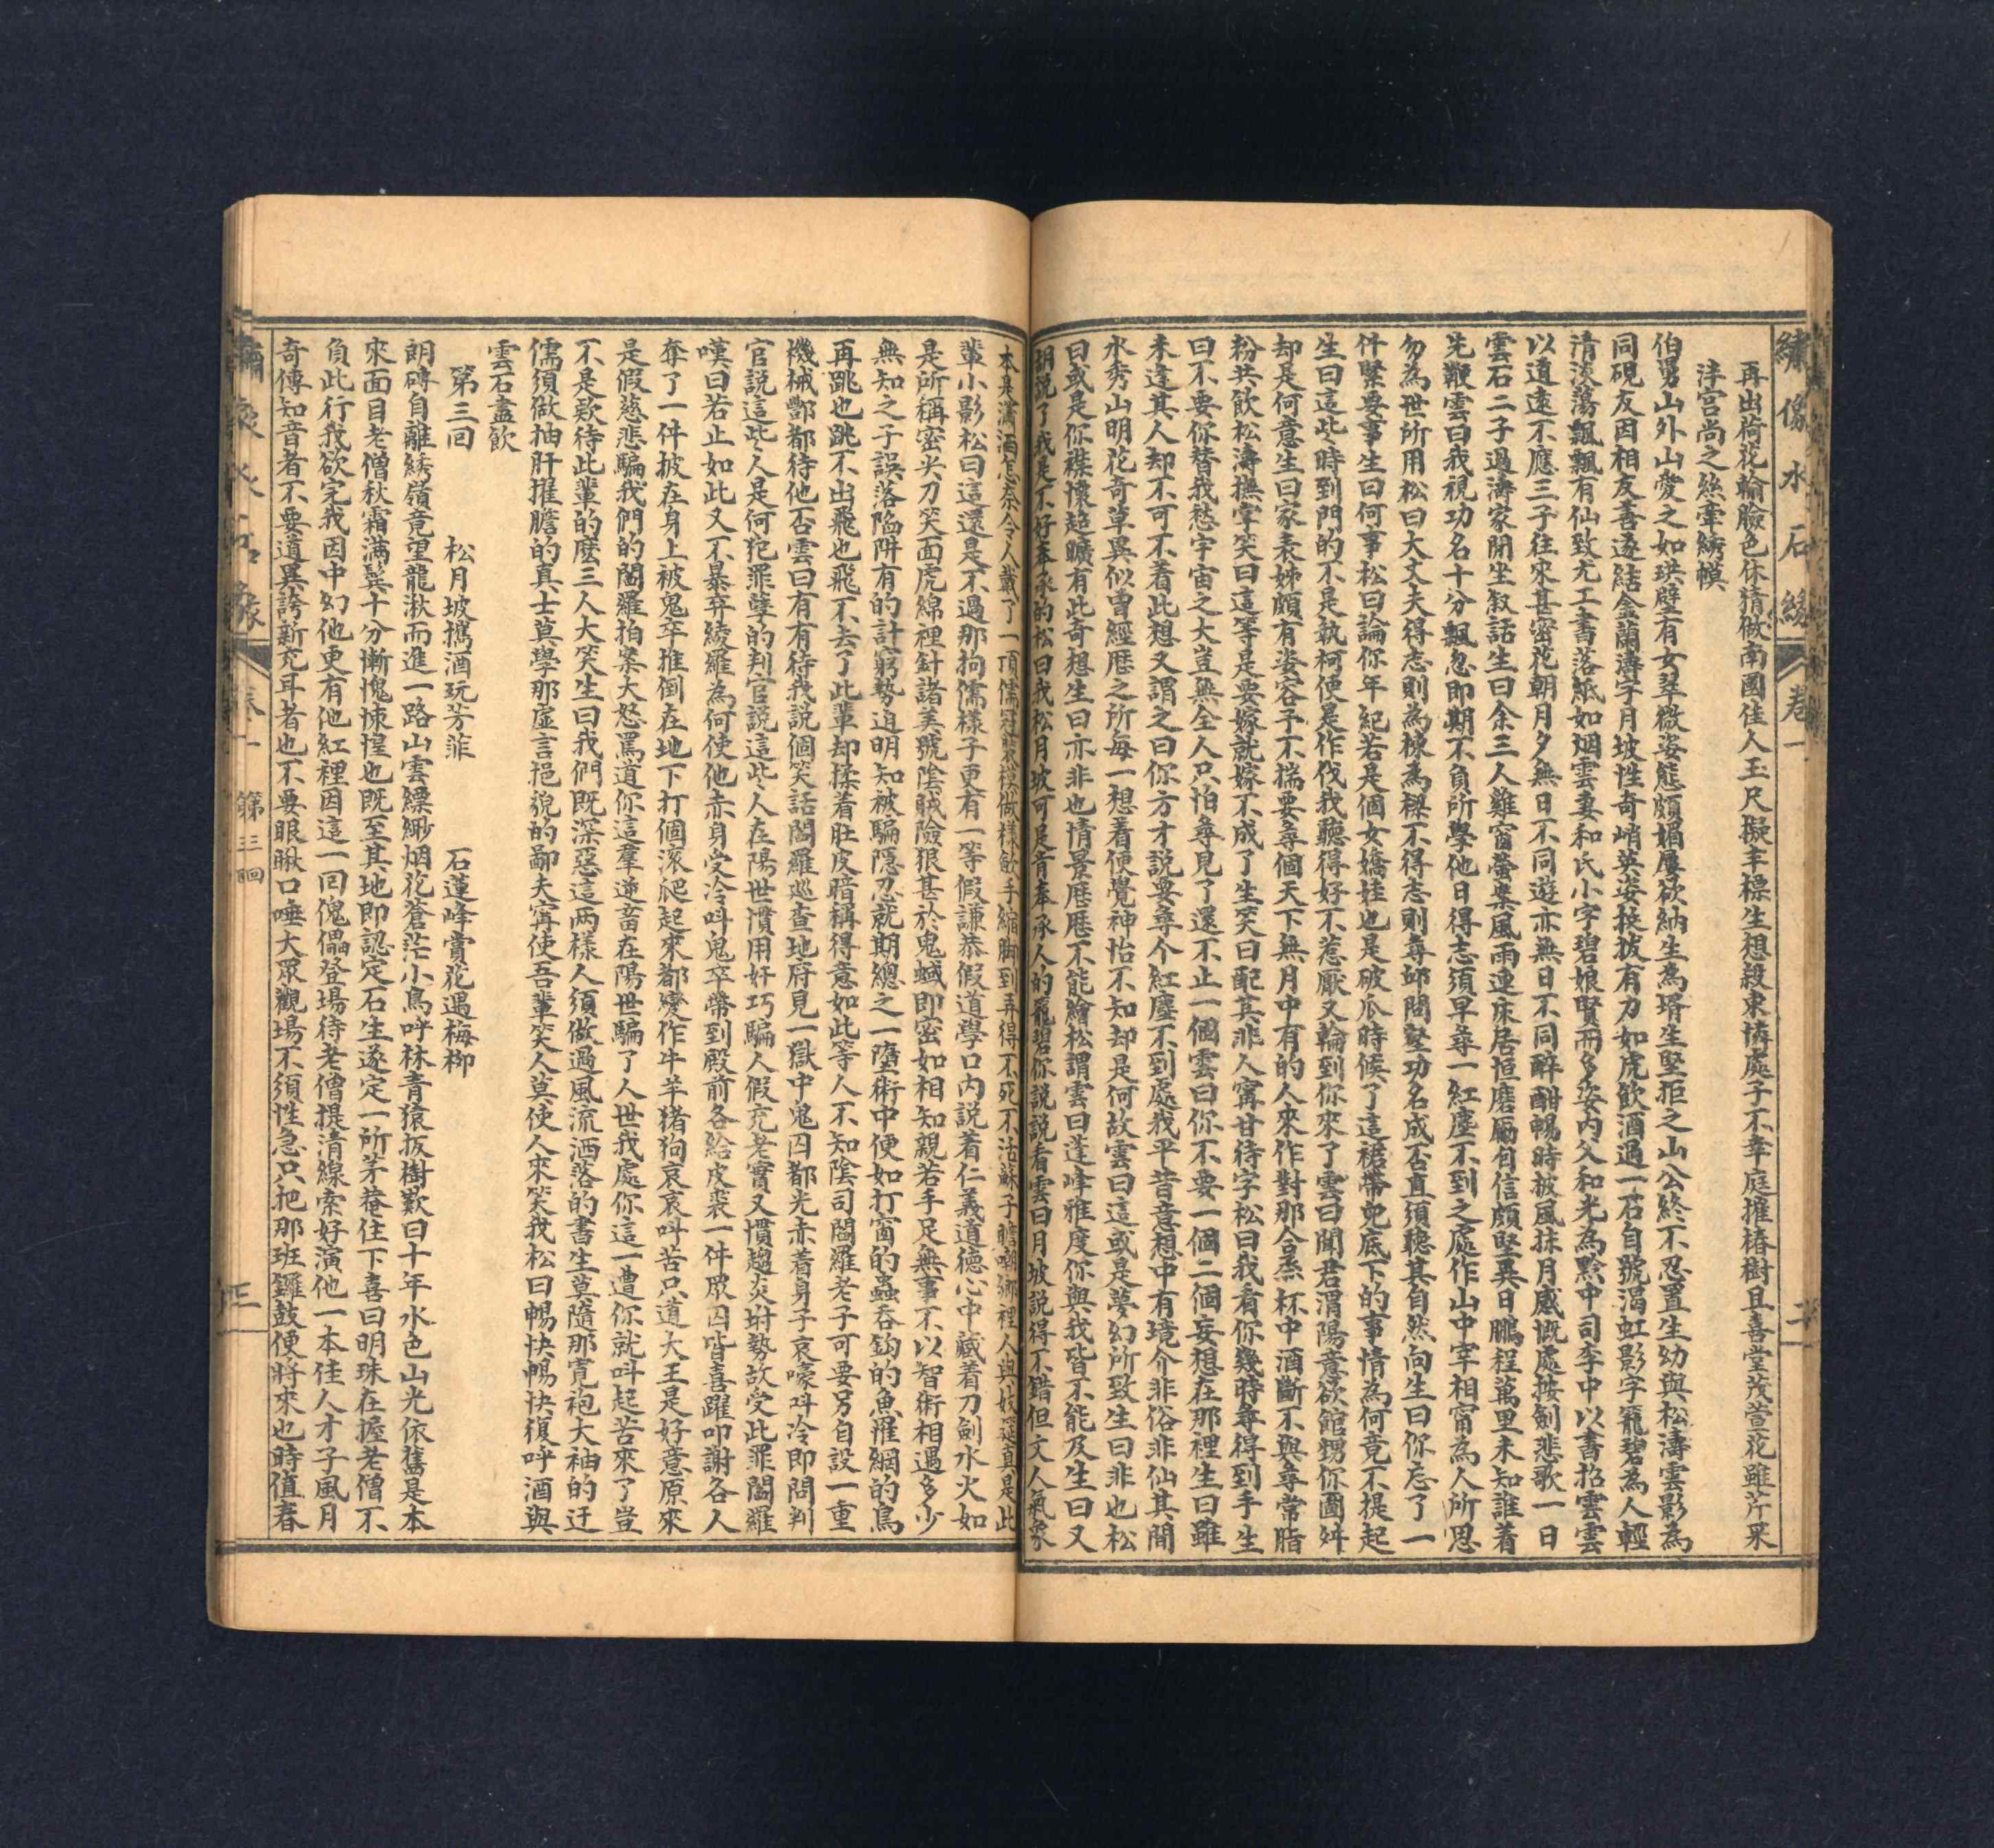 繡像水石緣 卷一 二
再出荷花輸臉色休猜做南國佳人玉尺擬丰標生想殺東憐處子不幸庭摧椿樹且喜堂茂萱花雖芹采
泮宮尚之絲牽綉幙
伯舅山外山愛之如珙璧有女翠微姿態頗媚屢欲納生為壻生堅拒之山公終不忍置生幼與松濤雲影為
同硯友因相友善遂結金蘭濤字月坡性奇峭英姿挨拔有力如虎飲酒過一石自號渴虹影字籠碧為人輕
清淡蕩飄飄有仙致尤工書落紙如烟雲妻和氏小字碧娘賢而多姿內父和光為黔中司李中以書招雲雲
以道遠不應三子往來甚密花朝月夕無日不同遊亦無日不同醉酣暢時披風抹月感慨處按劍悲歌一日
雲石二子過濤家開坐敘話生曰余三人雞窗螢案風雨連床居恒磨厲自信頗堅異日鵬程萬里未知誰着
先鞭雲曰我視功名十分飄忽即期不負所學他日得志須早尋一紅塵不到之處作山中宰相甯為人所思
勿為世所用松曰大丈夫得志則為棟為樑不得志則尋邱問壑功名成否直須聽其自然向生曰你忘了一
件緊要事生曰何事松曰論你年紀若是個女嬌娃也是破瓜時候了這裙帶兒底下的事情為何竟不提起
生曰這些時到門的不是執柯便是作伐我聽得好不惹厭又輪到你來了雲曰聞君渭陽意欲館甥你圖舛
却是何意生曰家表姊頗有姿容予不揣要尋個天下無月中有的人來作對那合巹杯中酒斷不與尋常脂
粉共飲松濤撫掌笑曰這等是要嫁就嫁不成了生笑曰配其非人甯甘待字松曰我看你幾時尋得到手生
曰不要你替我愁宇宙之大豈無全人只怕尋見了還不止一個雲曰你不要一個二個妄想在那裡生曰雖
未逢其人却不可不着此想又謂之曰你方才說要尋个紅塵不到處我平昔意想中有境介非俗非仙其間
水秀山明花奇草異似曾經歷之所每一想着便覺神怡不知却是何故雲曰這或是夢幻所致生曰非也松
曰或是你襟懷超曠有此奇想生曰亦非也情景歷歷不能繪松謂雲曰蓬峰雅度你與我皆不能及生曰又
胡說了我是不好奉承的松曰我松月坡可是肯奉承人的籠碧你說說看雲曰月坡說得不錯但文人氣象
本是瀟洒怎奈今人戴了一頂儒冠裝模做樣斂手縮脚到弄得不死不活蘇子瞻嘲鄉裡人與妓筵真是此
輩小影松曰這還是不過那拘儒樣子更有一等假謙恭假道學口內說着仁義道德心中藏着刀劍水火如
是所稱密尖刀笑面虎綿裡針諸美號陰賊險狠甚於鬼蜮即密如相知親若手足無事不以智術相遇多少
無知之子誤落陷阱有的計窮勢迫明知被騙隱忍就期總之一墮術中便如打窗的蟲吞鈎的魚羅網的鳥
再跳也跳不出飛也飛不去了此輩却揉着肚皮暗稱得意如此等人不知陰司閻羅老子可要另自設一重
機械酆都待他否雲曰有有待我說個笑話閻羅巡查地府見一獄中鬼囚都光赤着身子哀嚎呌冷即問判
官說這些人是何犯罪孽的判官說這些人在陽世慣用奸巧騙人假充老實又慣趨炎坿勢故受此罪閻羅
嘆曰若止如此又不暴弃綾羅為何使他赤身受冷呌鬼卒帶到殿前各給皮裘一件眾囚皆喜躍叩謝各人
奪了一件披在身上被鬼卒推倒在地下打個滾爬起來都變作牛羊猪狗哀哀呌苦只道大王是好意原來
是假慈悲騙我們的閻羅拍案大怒罵道你這羣逆畜在陽世騙了人世我處你這一遭你就呌起苦來了豈
不是欵待此輩的麼三人大笑生曰我們既深惡這两樣人須做過風流洒落的書生莫隨那寬袍大袖的迂
儒須做抽肝摧膽的真士莫學那虛言挹貌的鄙夫甯使吾輩笑人莫使人來笑我松曰暢快暢快復呼酒與
雲石盡飲
第三回 松月坡攜酒玩芳菲 石蓮峰賞花遇梅柳
朗磚自離綉嶺竟望龍湫而進一路山雲縹緲烟花蒼茫小鳥呼林青猿扳樹歎曰十年水色山光依舊是本
來面目老僧秋霜滿鬢十分慚愧悚惶也既至其地即認定石生遂定一所茅菴住下喜曰明珠在握老僧不
負此行我欲完我因中幻他更有他紅裡因這一回傀儡登場待老僧提清線索好演他一本佳人才子風月
奇傳知音者不要道異誇新充耳者也不要眼瞅口唾大眾觀場不須性急只把那班鑼鼓便將來也時值春
卷一 第三回 三